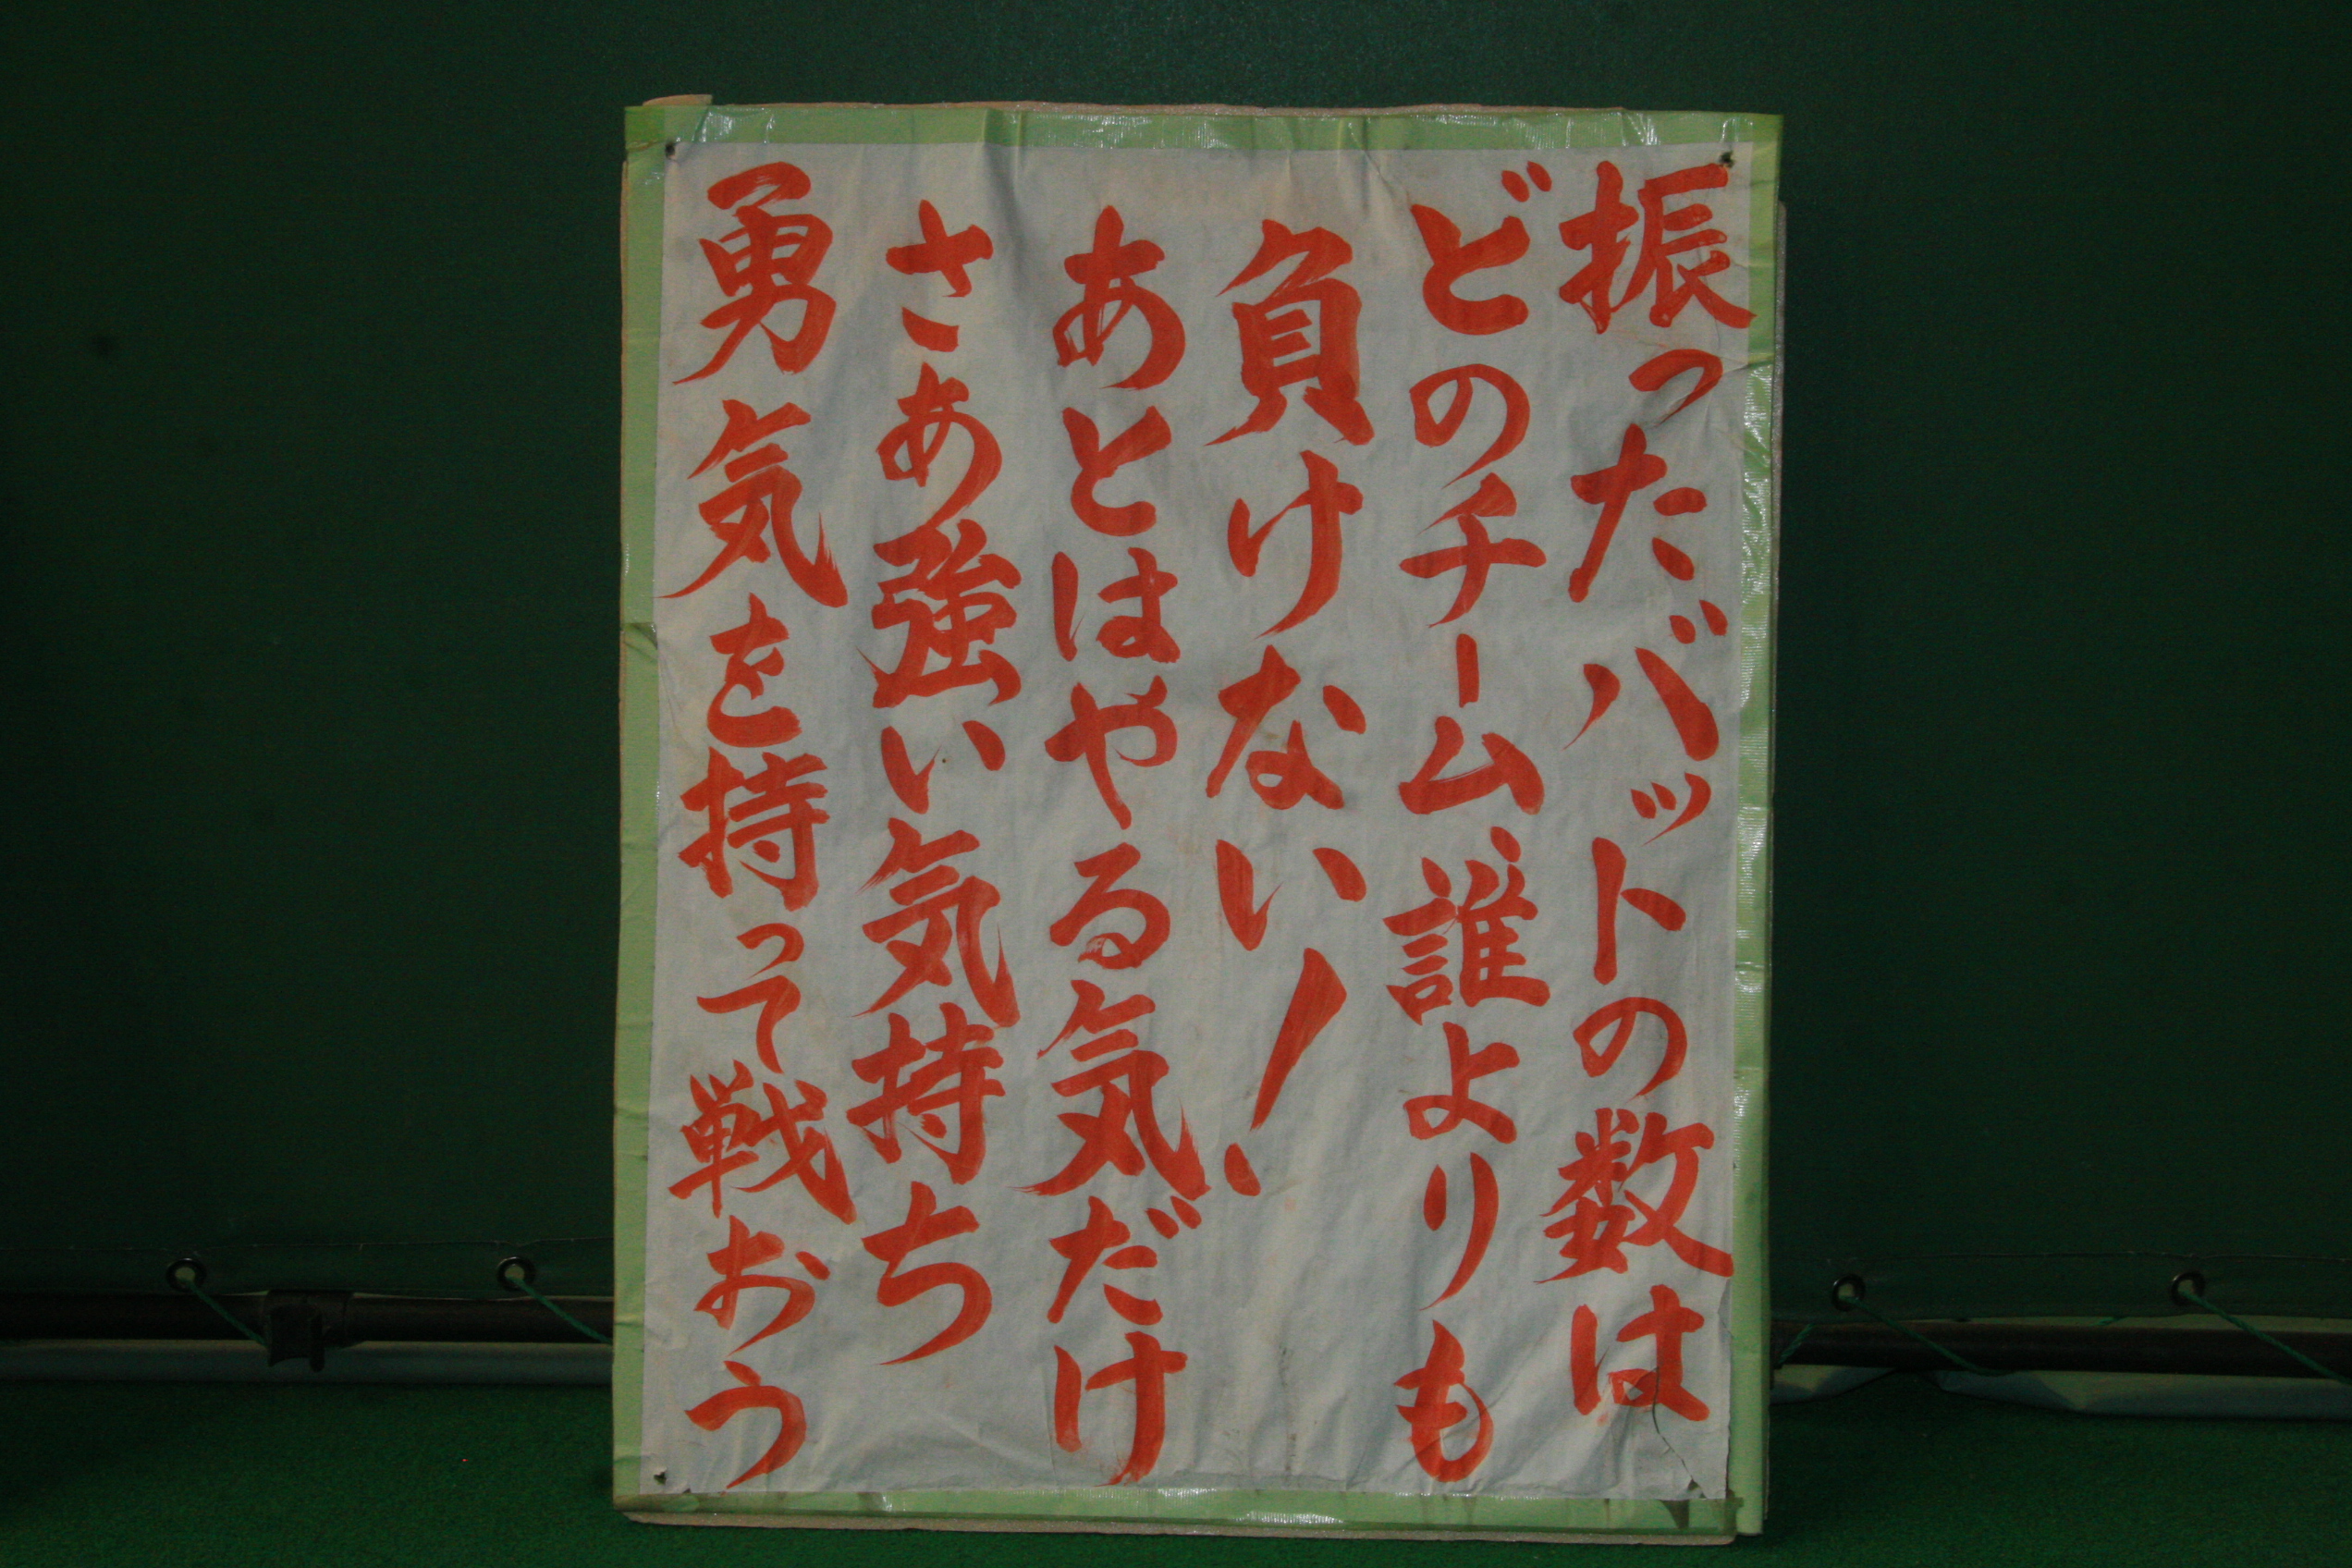 振ったバットの数は
どのチーム、誰よりも
負けない!
あとはやる気だけ
さあ強い気持ち
勇気を持って戦おう